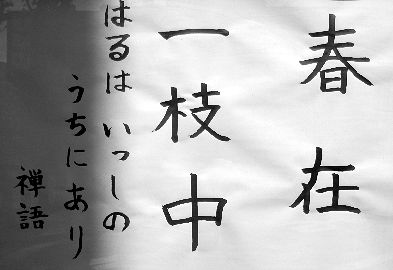 春在
一枝中
はるは いっしの
うちに あり
禅語